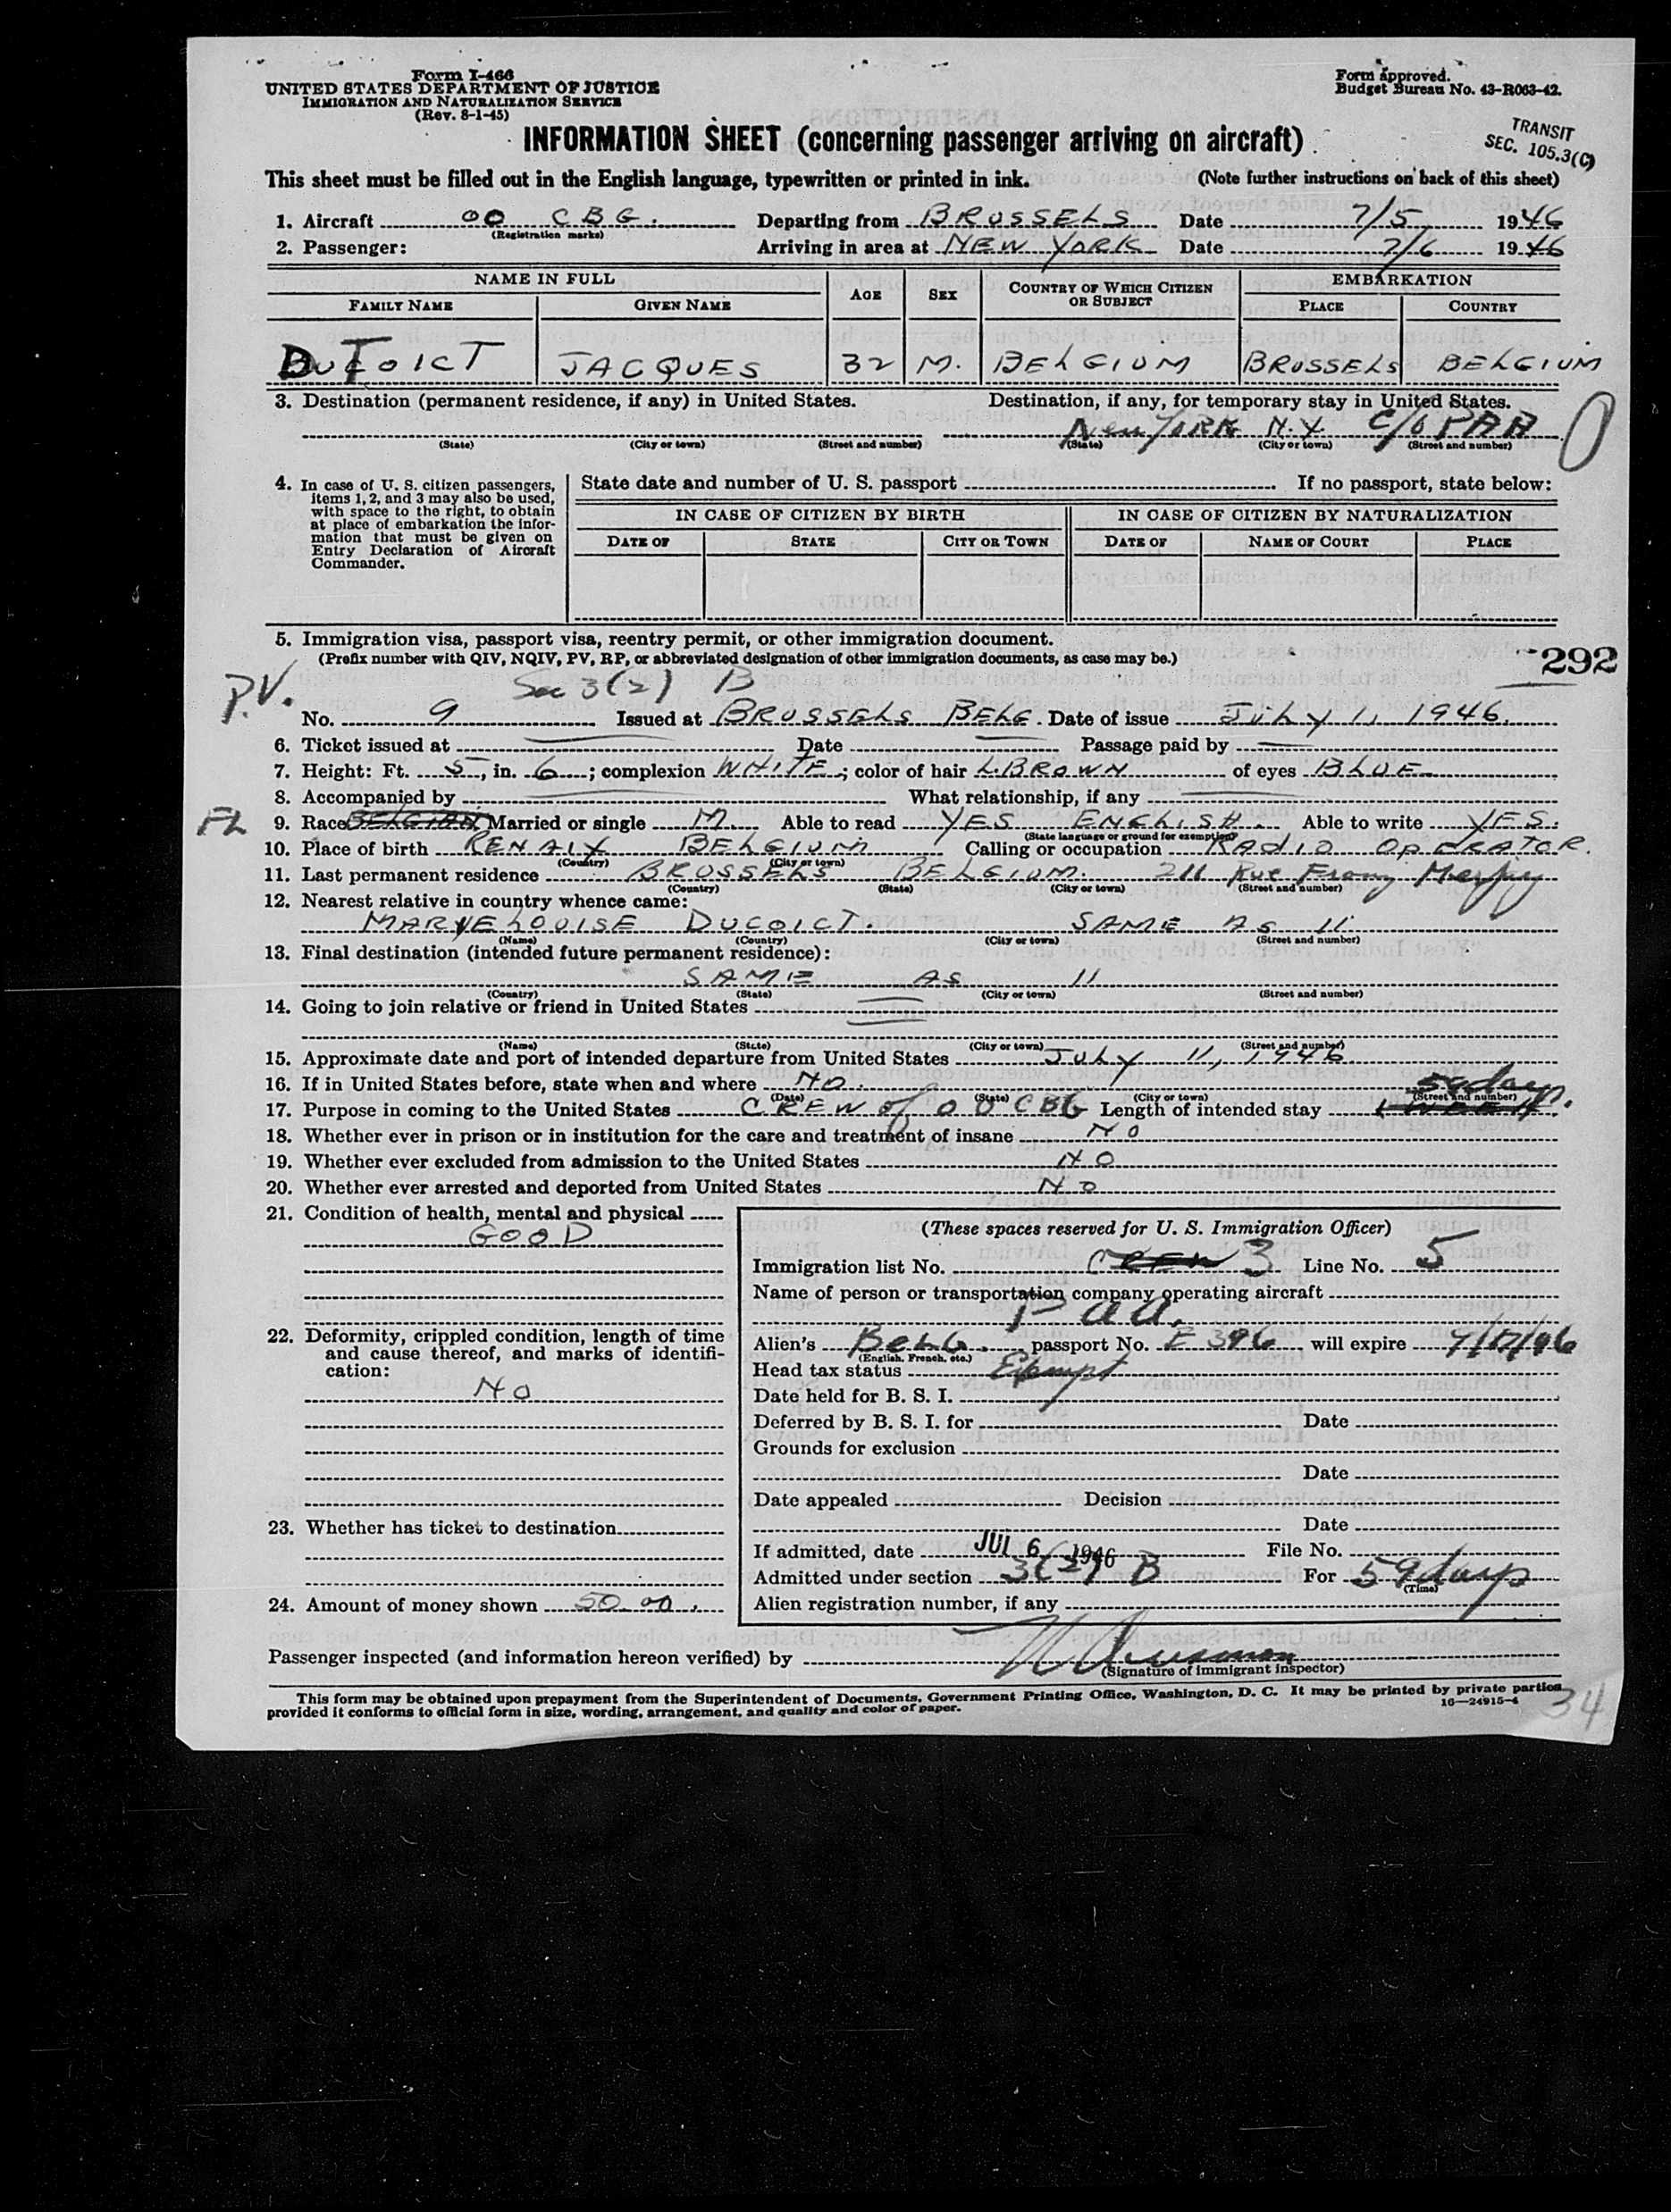 Form I-466
UNITED STATES DEPARTMENT OF JUSTICE
IMMIGRATION AND NATURALIZATION SERVICE
(Rev. 8-1-45)
Form approved.
Budget Bureau No. 43-R063-42.
INFORMATION SHEET (concerning passenger arriving on aircraft)
TRANSIT
SEC. 105.3(C)
This sheet must be filled out in the English language, typewritten or printed in ink. (Note further instructions on back of this sheet)
1. Aircraft OO CBG. Departing from BRUSSELS Date 7/5 1946
(Registration marks)
2. Passenger: Arriving in area at NEW YORK Date 7/6 1946
NAME IN FULL AGE SEX COUNTRY OF WHICH CITIZEN OR SUBJECT EMBARKATION
FAMILY NAME GIVEN NAME PLACE COUNTRY
DUTOICT JACQUES 32 M. BELGIUM BRUSSELS BELGIUM
3. Destination (permanent residence, if any) in United States. Destination, if any, for temporary stay in United States.
New YORK N.Y C/O PAA
(State) (City or town) (Street and number) (State) (City or town) (Street and number)
4. In case of U. S. citizen passengers, items 1, 2, and 3 may also be used, with space to the right, to obtain at place of embarkation the information that must be given on Entry Declaration of Aircraft Commander.
State date and number of U. S. passport If no passport, state below:
IN CASE OF CITIZEN BY BIRTH IN CASE OF CITIZEN BY NATURALIZATION
DATE OF STATE CITY OR TOWN DATE OF NAME OF COURT PLACE
5. Immigration visa, passport visa, reentry permit, or other immigration document.
(Prefix number with QIV, NQIV, PV, RP, or abbreviated designation of other immigration documents, as case may be.)
292
P.V. Sec 3(2) B
No. 9 Issued at BRUSSELS BELG. Date of issue JULY 1, 1946.
6. Ticket issued at Date Passage paid by
7. Height: Ft. 5, in. 6; complexion WHITE; color of hair L.BROWN of eyes BLUE
8. Accompanied by What relationship, if any
FL 9. Race BELGIAN Married or single M. Able to read YES ENGLISH. Able to write YES.
(State language or ground for exemption)
10. Place of birth RENAIX BELGIUM Calling or occupation RADIO OPERATOR.
(Country) (City or town)
11. Last permanent residence BRUSSELS BELGIUM. 211 Rue Franz
(Country) (State) (City or town) (Street and number)
12. Nearest relative in country whence came:
LOUISE DUCOICT. SAME AS 11
(Name) (Country) (City or town) (Street and number)
13. Final destination (intended future permanent residence):
SAME AS 11
(Country) (State) (City or town) (Street and number)
14. Going to join relative or friend in United States
(Name) (State) (City or town) (Street and number)
15. Approximate date and port of intended departure from United States July 11, 1946
16. If in United States before, state when and where NO.
(Date) (State) (City or town) (Street and number)
59 days.
17. Purpose in coming to the United States CREW of OO CBG Length of intended stay 1 WEEK
18. Whether ever in prison or in institution for the care and treatment of insane NO
19. Whether ever excluded from admission to the United States NO
20. Whether ever arrested and deported from United States NO
21. Condition of health, mental and physical
GOOD
22. Deformity, crippled condition, length of time and cause thereof, and marks of identification:
NO
23. Whether has ticket to destination
24. Amount of money shown 50.00.
(These spaces reserved for U. S. Immigration Officer)
Immigration list No. CREW 3 Line No. 5
Name of person or transportation company operating aircraft
Paa.
Alien's BELG. passport No. E 396 will expire
(English, French, etc.)
Head tax status Exempt
Date held for B. S. I.
Deferred by B. S. I. for Date
Grounds for exclusion
Date
Date appealed Decision
Date
If admitted, date JUL 6 1946 File No.
Admitted under section 3(2) B For 59 days
(Time)
Alien registration number, if any
Passenger inspected (and information hereon verified) by
(Signature of immigrant inspector)
This form may be obtained upon prepayment from the Superintendent of Documents, Government Printing Office, Washington, D. C. It may be printed by private parties
provided it conforms to official form in size, wording, arrangement, and quality and color of paper.
16—24915-4
34